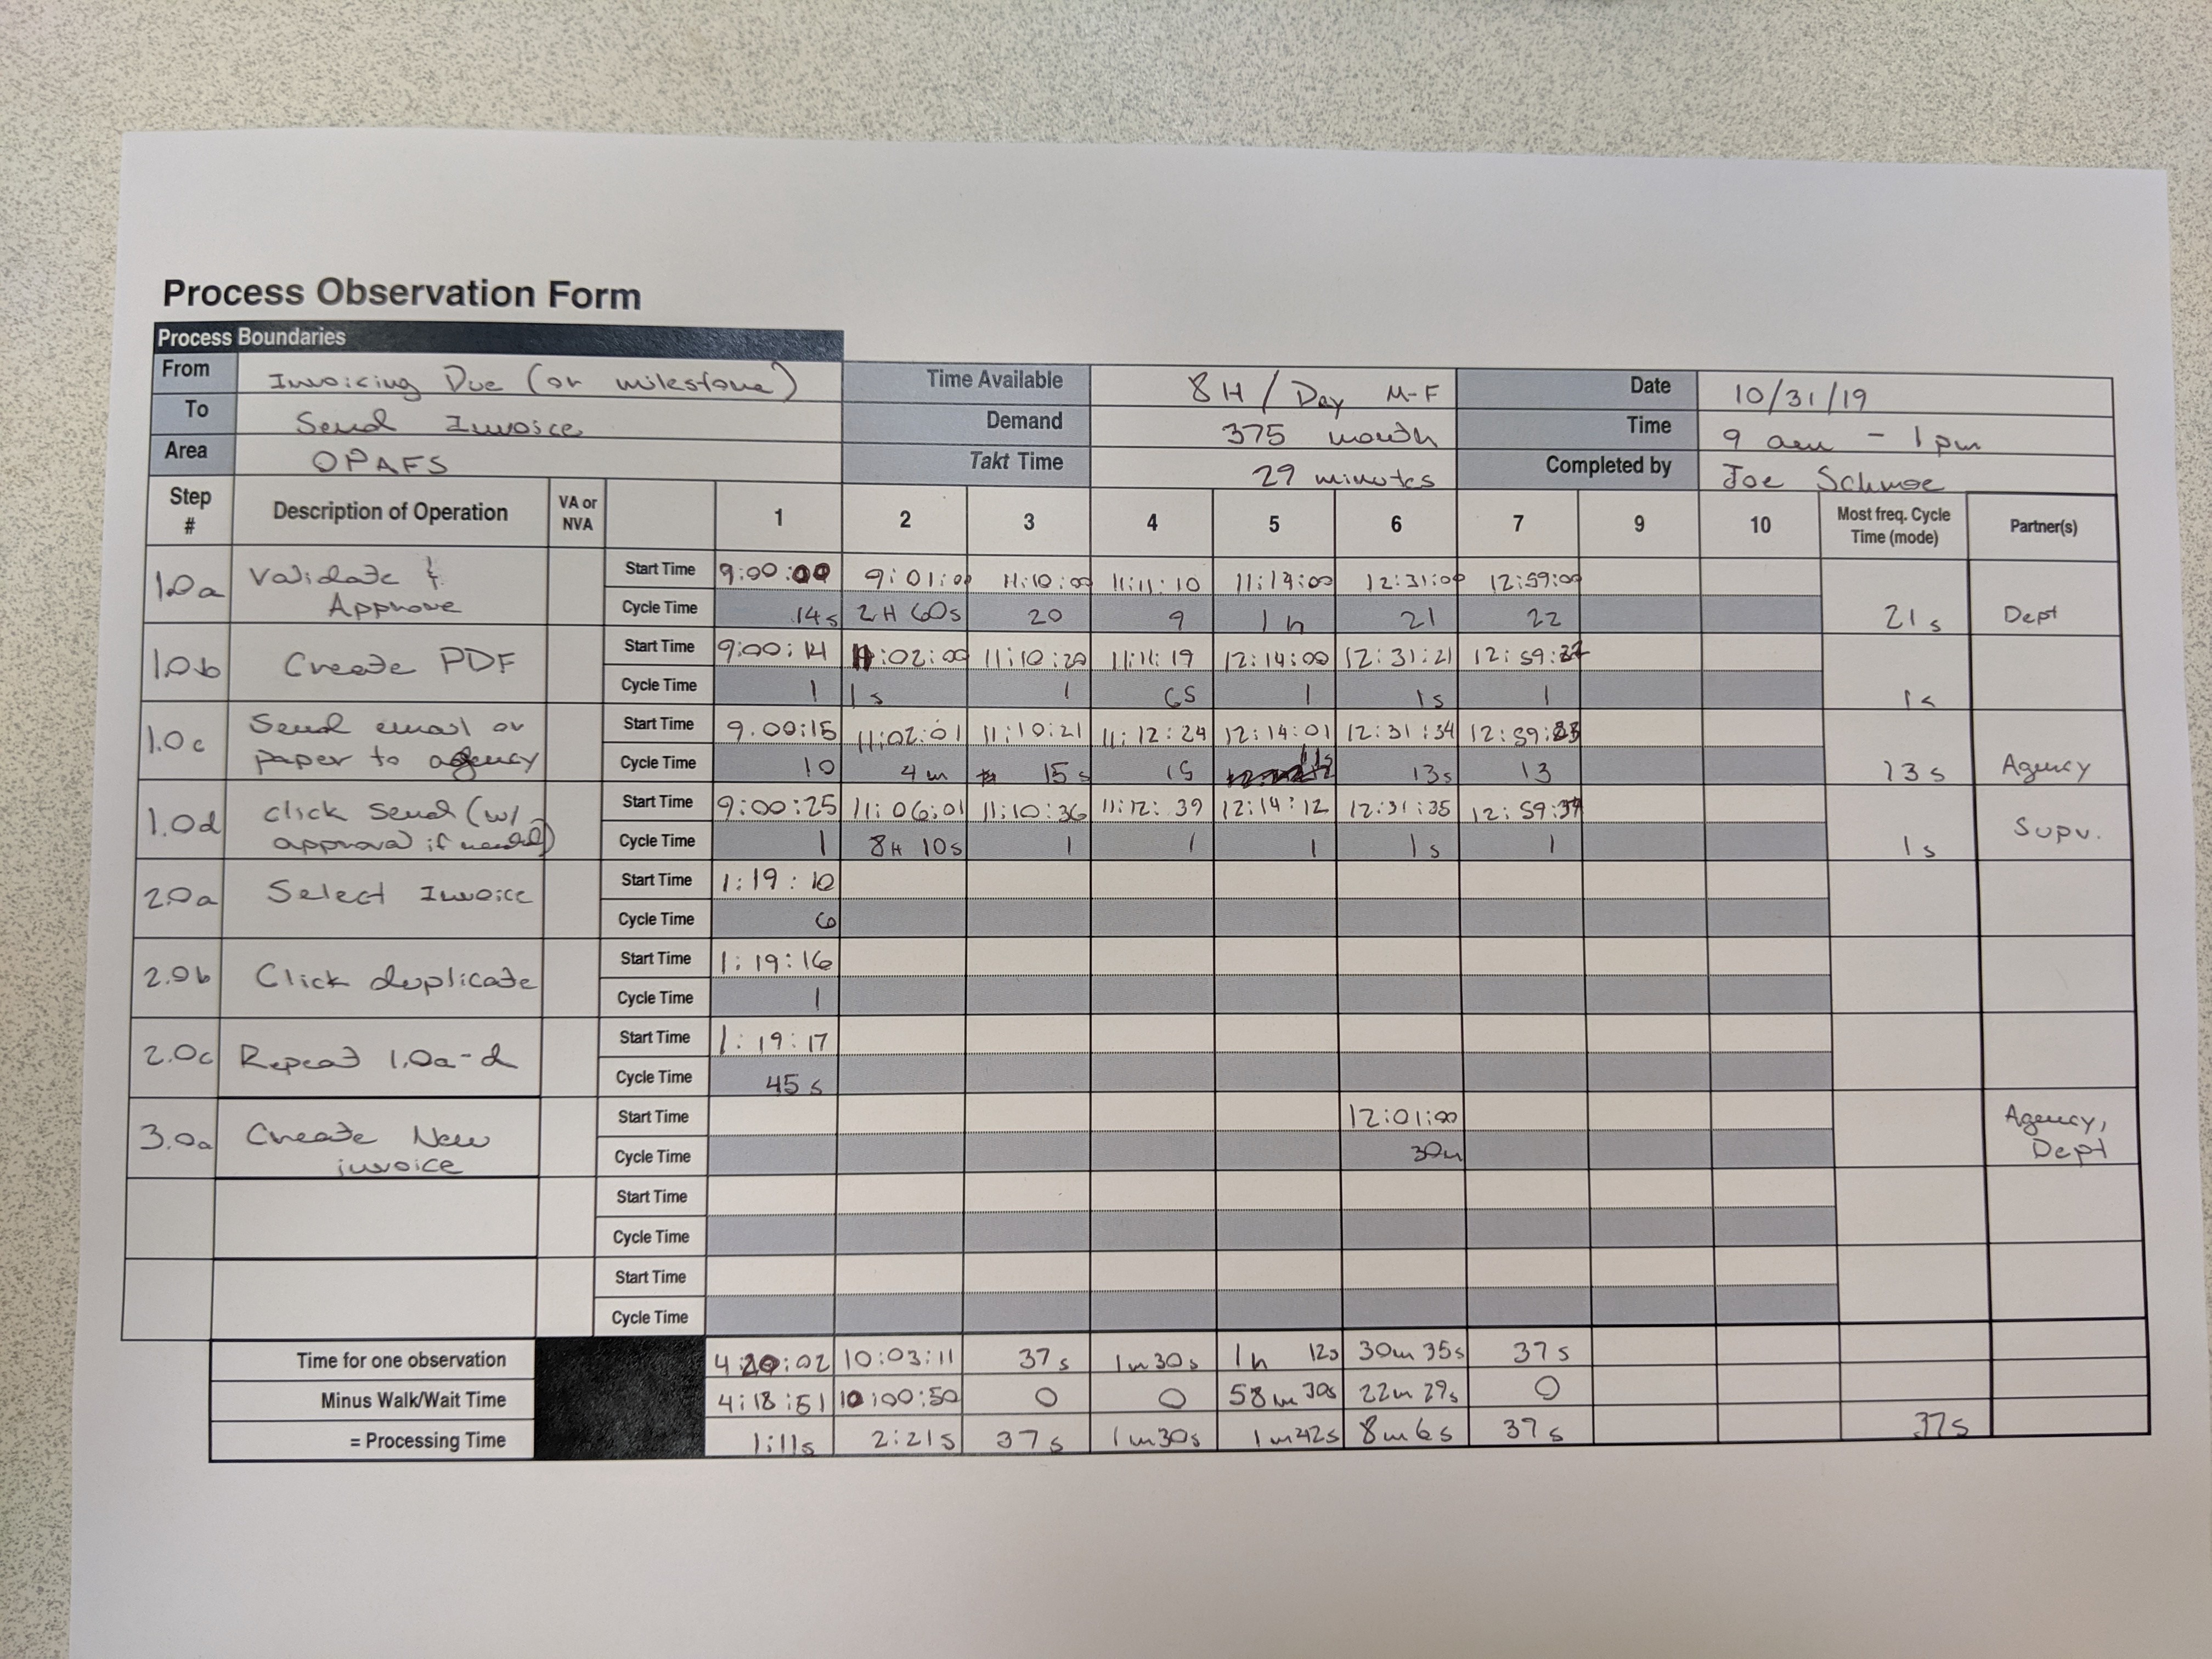 Process Observation Form
Process Boundaries
From Invoicing Due (or milestone) Time Available 8H / Day M-F Date 10/31/19
To Send Invoice Demand 375 month Time 9 am - 1 pm
Area OPAFS Takt Time 29 minutes Completed by Joe Schmoe
Step # Description of Operation VA or NVA 1 2 3 4 5 6 7 9 10 Most freq. Cycle Time (mode) Partner(s)
1.0a Validate & Approve Start Time 9:00:00 9:01:00 11:10:00 11:11:10 11:14:00 12:31:00 12:59:00
Cycle Time 14s 2H 60s 20 9 1h 21 22 21s Dept
1.0b Create PDF Start Time 9:00:14 11:02:00 11:10:20 11:11:19 12:14:00 12:31:21 12:59:22
Cycle Time 1 1s 1 65 1 1s 1 1s
1.0c Send email or paper to agency Start Time 9:00:15 11:02:01 11:10:21 11:12:24 12:14:01 12:31:34 12:59:23
Cycle Time 10 4m 15s 15 11s 13s 13 13s Agency
1.0d click send (w/ approval if needed) Start Time 9:00:25 11:06:01 11:10:36 11:12:39 12:14:12 12:31:35 12:59:37
Cycle Time 1 8H 10s 1 1 1 1s 1 1s Supv.
2.0a Select Invoice Start Time 1:19:10
Cycle Time 6
2.0b Click duplicate Start Time 1:19:16
Cycle Time 1
2.0c Repeat 1.0a-d Start Time 1:19:17
Cycle Time 45s
3.0a Create New invoice Start Time 12:01:00
Cycle Time 30m Agency, Dept
Start Time
Cycle Time
Start Time
Cycle Time
Time for one observation 4:20:02 10:03:11 37s 1m30s 1h 12s 30m 35s 37s
Minus Walk/Wait Time 4:18:51 10:00:50 0 0 58m 30s 22m 29s 0
= Processing Time 1:11s 2:21s 37s 1m30s 1m42s 8m6s 37s 37s